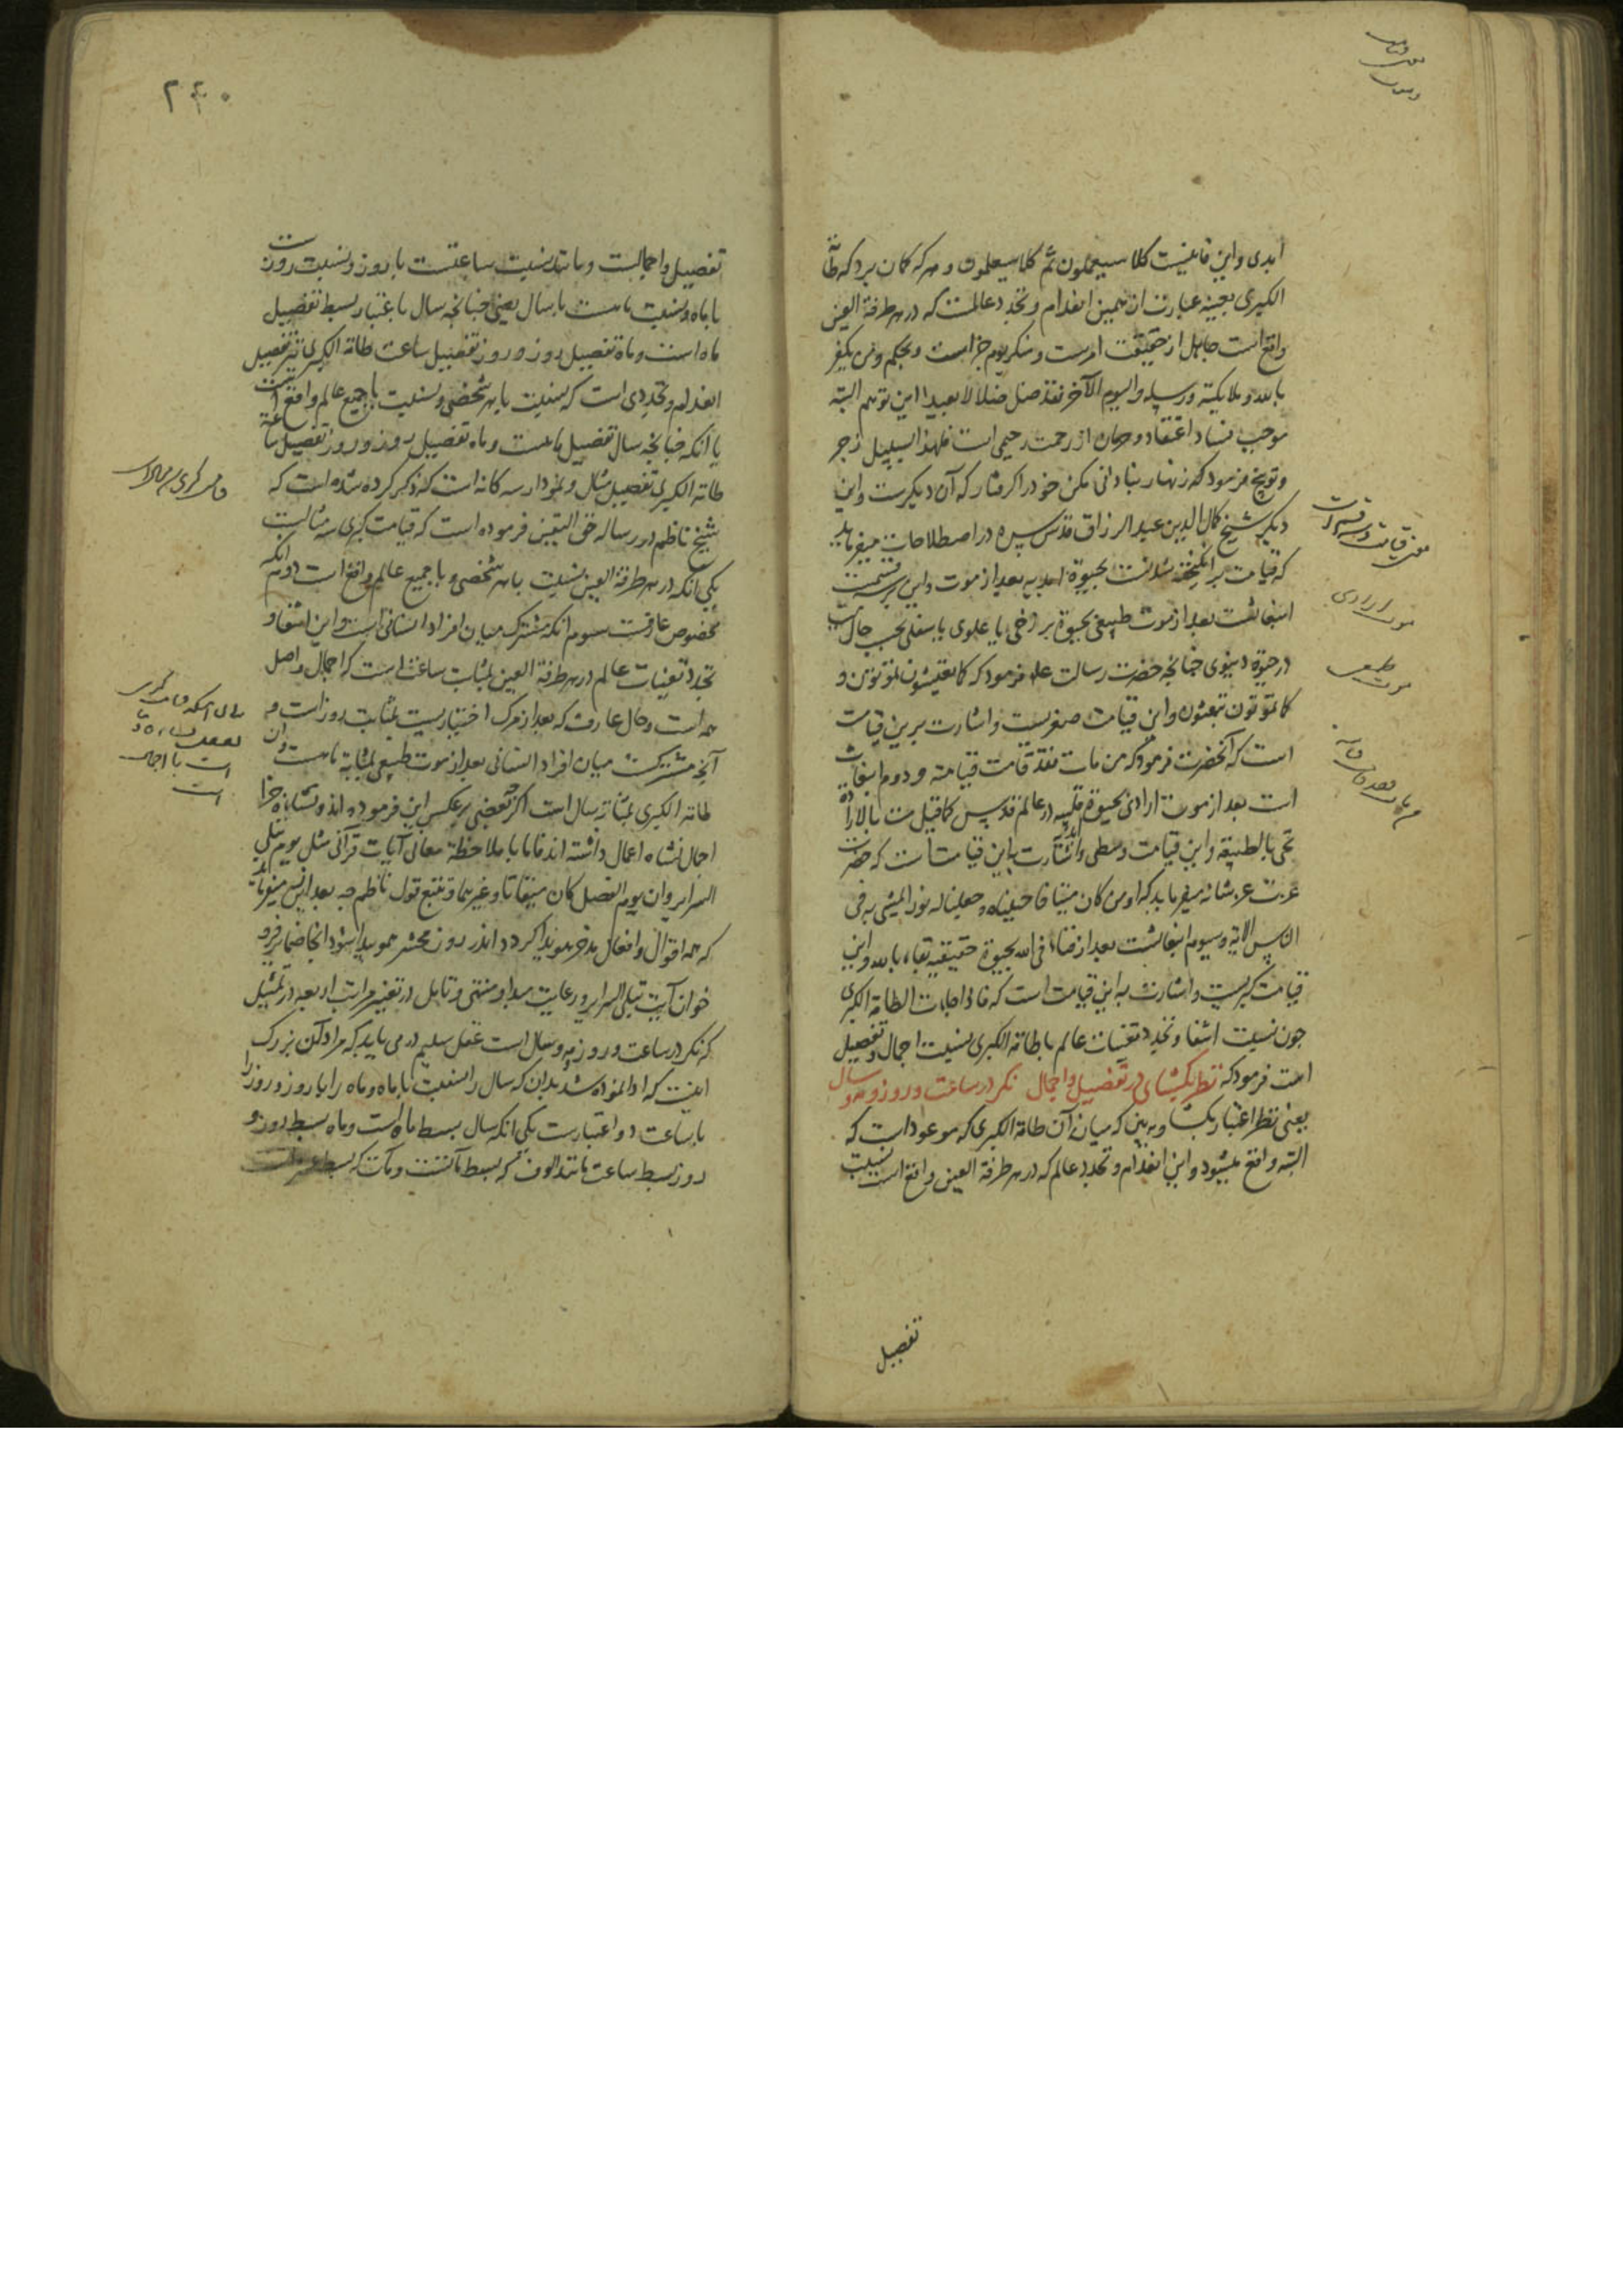 ابدی و این فانیست کلا سیعلمون ثم کلا سیعلمون و هر که کمان برد که طامة
الکبری بعینه عبارت از همین انعدام و تجدد عالمست که در هر طرفة العین
واقع است جاهل از حقیقت امرست و منکر یوم جزاست و بحکم و من یکفر
بالله و ملایکته و رسله و الیوم الآخر فقد ضل ضلالا بعیدا این توهم البته
موجب فساد اعتقاد و حرمان از رحمت رحیمی است فلهذا السبیل زجر
و توبیخ فرمود که زنهار بنادانی مکن خود را کرفتار که آن دیکرست و این
دیکر شیخ کمال الدین عبد الرزاق قدس سره در اصطلاحات میفرماید
که قیامت برانکیخته شدنست بحیوة ابدیه بعد از موت و این بر سه قسمست
اول انبعاثست بعد از موت طبیعی بحیوة برزخی یا علوی یا سفلی بحسب حال میت
در حیوة دنیوی چنانچه حضرت رسالت علیه فرمود که کما تعیشون تموتون و
کما تموتون تبعثون و این قیامت صغریست و اشارت برین قیامت
است که آنحضرت فرمود که من مات فقد قامت قیامته و دوم انبعاث
است بعد از موت ارادی بحیوة قلبیه در عالم قدس کما قیل مت بالارادة
تحی بالطبیعه و این قیامت وسطی و اشارت باین قیامت است که حضرت
عزت عز شانه میفرماید که او من کان میتا فاحییناه و جعلنا له نورا یمشی به فی
الناس الایة و سیوم انبعاثست بعد از فناء فی الله بحیوة حقیقیه بقاء بالله و این
قیامت کبریست و اشارت به این قیامت است که فاذا جاءت الطامة الکبری
چون نسبت اشفا و تجدد تعینات عالم با طامة الکبری نسبت اجمال و تفصیل
است فرمود که نظر بکشای در تفصیل و اجمال نکر در ساعت و روز و مه و سال
یعنی نظر اعتبار بکشا و ببین که میان آن طامة الکبری که موعود است که
البته واقع میشود و این انعدام و تجدد عالم که در هر طرفة العین واقع است نسبت
تفصیل
موت ارادی
موت طبیعی
۲۴۰
تفصیل و اجمالست و مانند نسبت ساعتست با روز و نسبت روزست
با ماه و نسبت ماهست با سال یعنی چنانچه سال باعتبار بسط تفصیل
ماه است و ماه تفصیل روز و روز تفصیل ساعت طامة الکبری نیز تفصیل
انعدام و تجددی است که بنسبت با هر شخصی و بنسبت با جمیع عالم واقع است
یا آنکه چنانچه سال تفصیل ماهست و ماه تفصیل روز و روز تفصیل ساعة
طامة الکبری تفصیل مثال و نمودار سه کانه است که ذکر کرده شده است که
شیخ ناظم در رساله حق الیقین فرموده است که قیامت کبری سه مثالست
یکی آنکه در هر طرفة العین بنسبت با هر شخصی و با جمیع عالم واقع است دوم آنکه
مخصوص عارفست سیوم آنکه مشترک میان افراد انسانی است و این اشفا و
تجدد تعینات عالم در هر طرفة العین بمثابت ساعت است که اجمال و اصل
همه است و حال عارف که بعد از مرک اختیاریست بمثابت روز است و
آنچه مشترکست میان افراد انسانی بعد از موت طبیعی بمثابة ماهست و آن
طامة الکبری بمثابه سال است اکرچه بعضی برعکس این فرموده اند و نشاه جزا
اجمال نشاه اعمال داشته اند فاما با ملاحظه معانی آیات قرآنی مثل یوم تبلی
السرایر و ان یوم الفصل کان میقاتا و غیرهما و تتبع قول ناظم چه بعد ازین میفرماید
که همه اقوال و افعال مدخر هویدا کردد اندر روز محشر هم پیدا شود آنجا ضمایر فرو
خوان آیت تبلی السرایر و رعایت مبدا و منتهی و تقابل در تعین مراتب اربعه در تمثیل
که نکر در ساعت و روز و مه و سال است عقل سلیم در می یابد که مراد آن بزرک
اینست که ادا نموده شد بدان که سال را نسبت با ماه و ماه را با روز و روز را
با ساعت دو اعتبارست یکی آنکه سال بسط ماه است و ماه بسط روز و
روز بسط ساعت مانند الوف که بسط مآتست و مآت که بسط عشراتست